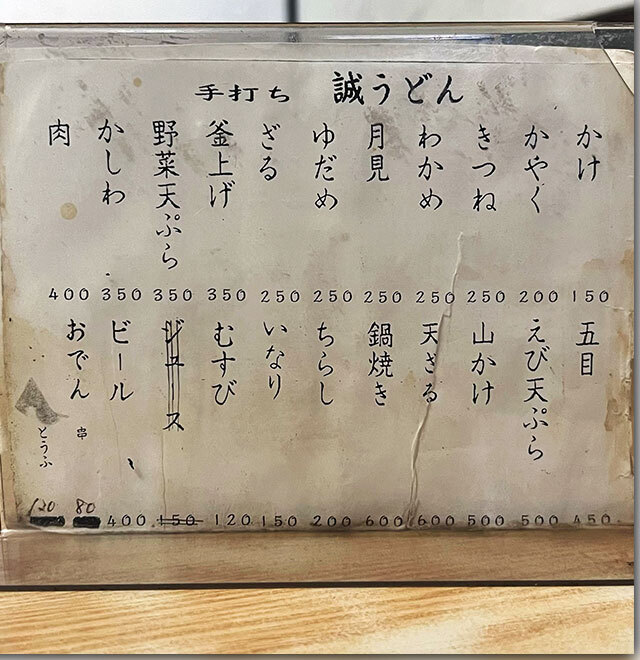 手打ち　誠うどん
かけ 150
かやく 200
きつね 250
わかめ 250
月見 250
ゆだめ 250
ざる 250
釜上げ 350
野菜天ぷら 350
かしわ 350
肉 400
五目 450
えび天ぷら 500
山かけ 500
天ざる 600
鍋焼き 600
ちらし 200
いなり 150
むすび 120
ジュース 150
ビール 400
おでん 串 80
とうふ 120